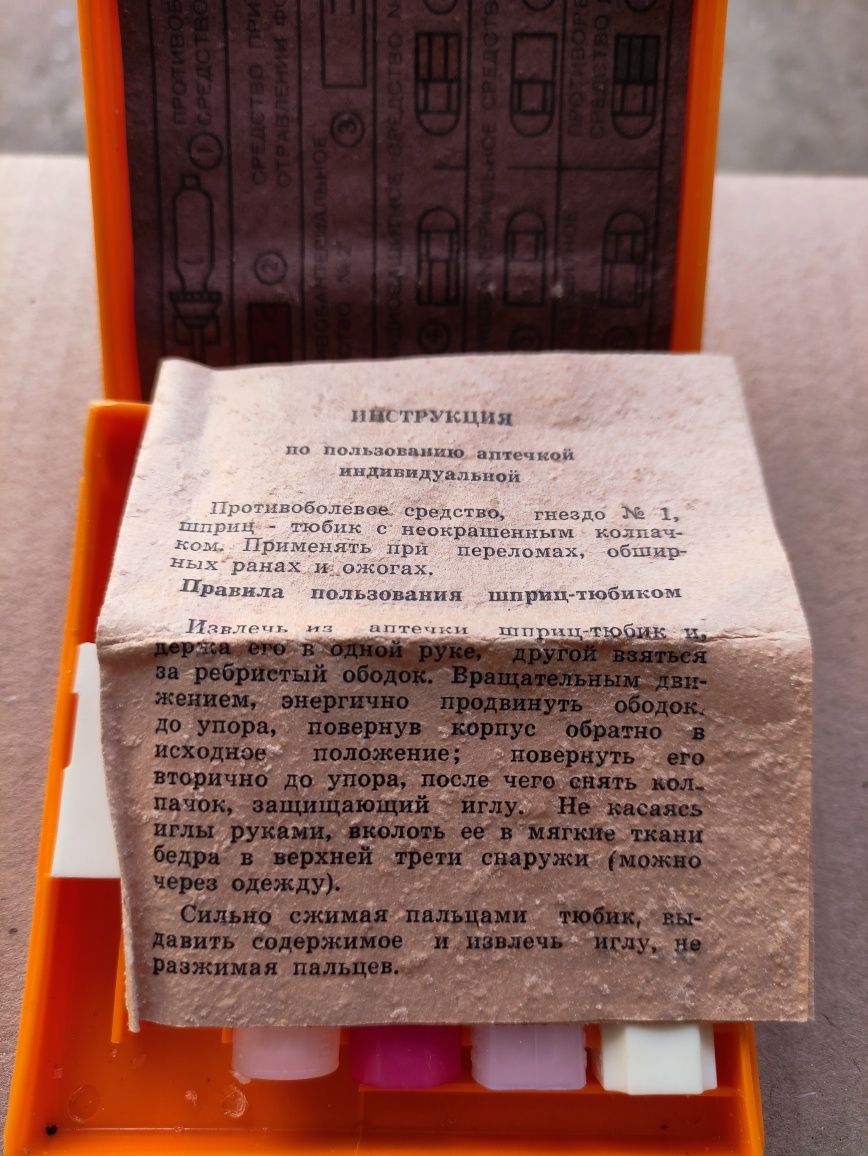 ПРОТИВОБ
СРЕДСТВО
1
СРЕДСТВО ПРИ
ОТРАВЛЕНИИ ФО
2
3
4
СРЕДСТВО №
СРЕДСТВ
ПРОТИВОР
СРЕДСТВО
ИНСТРУКЦИЯ
по пользованию аптечкой
индивидуальной
Противоболевое средство, гнездо № 1,
шприц - тюбик с неокрашенным колпач-
ком. Применять при переломах, обшир-
ных ранах и ожогах.
Правила пользования шприц-тюбиком
Извлечь из аптечки шприц-тюбик и,
держа его в одной руке, другой взяться
за ребристый ободок. Вращательным дви-
жением, энергично продвинуть ободок
до упора, повернув корпус обратно в
исходное положение; повернуть его
вторично до упора, после чего снять кол-
пачок, защищающий иглу. Не касаясь
иглы руками, вколоть ее в мягкие ткани
бедра в верхней трети снаружи (можно
через одежду).
Сильно сжимая пальцами тюбик, вы-
давить содержимое и извлечь иглу, не
разжимая пальцев.